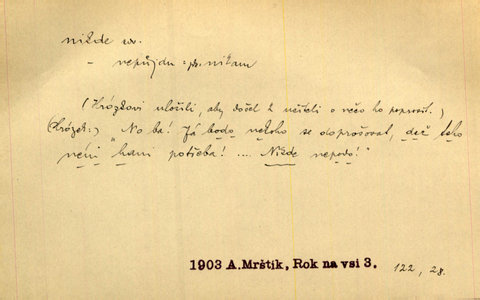 nižde adv.
– nepůjdu : při. nikam
(Hrózkovi uložili, aby došel k učiteli o něčo ho poprosit.)
(Hrózek:) "No ba! Já bodo nekoho se doprošovat, dež teho
néni hani potřeba! .... Nižde nepodo!"
1903 A. Mrštík, Rok na vsi 3. 122, 28.